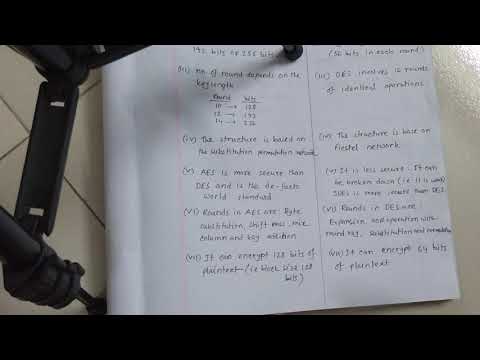 192 bits or 256 bits
(iii) no. of round depends on the
key length
Round bits
10 → 128
12 → 192
14 → 256
(iv) The structure is based on
the substitution permutation network
(v) AES is more secure than
DES and is the de-facto
world standard
(vi) Rounds in AES are: Byte
substitution, shift row, mix
column and key addition
(vii) It can encrypt 128 bits of
plaintext (i.e block size 128
bits)
in each round)
(iii) DES involves 16 rounds
of identical operations
(iv) The structure is base on
Fiestel network.
(v) It is less secure. It can
be broken down (i.e it is weak)
3DES is more secure than DES.
(vi) Rounds in DES are:
Expansion, XOR operation with
round key, substitution and permutation
(vii) It can encrypt 64 bits
of plaintext